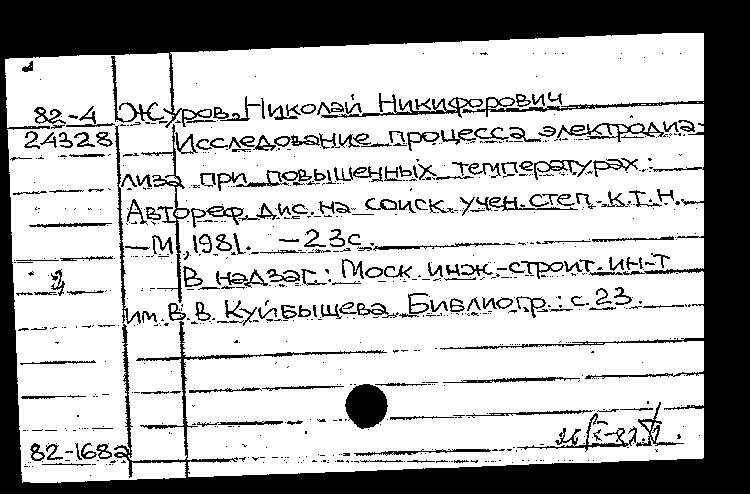 82-4 Журов Николай Никифорович
24328 Исследование процесса электродиа-
лиза при повышенных температурах:
Автореф. дис. на соиск. учен. степ. к.т.н.
—М., 1981. —23с.
В надзаг.: Моск. инж.-строит. ин-т
им. В.В. Куйбышева. Библиогр.: с. 23.
82-1682